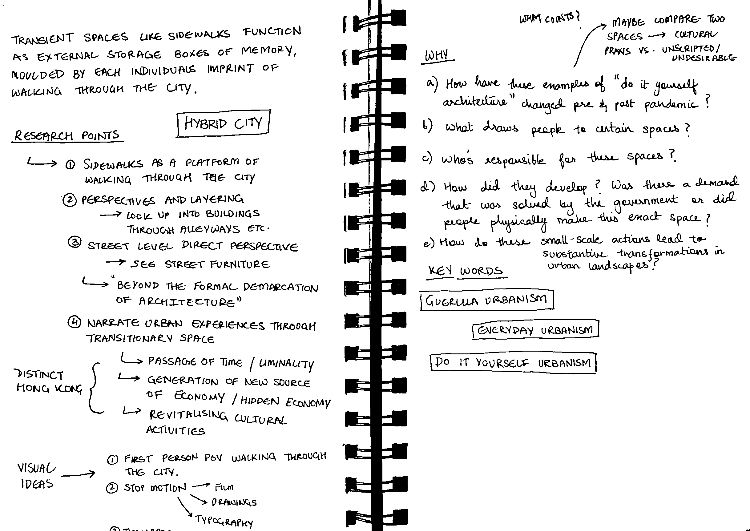 TRANSIENT SPACES LIKE SIDEWALKS FUNCTION
AS EXTERNAL STORAGE BOXES OF MEMORY,
MOULDED BY EACH INDIVIDUALS IMPRINT OF
WALKING THROUGH THE CITY.
HYBRID CITY
RESEARCH POINTS
① SIDEWALKS AS A PLATFORM OF
WALKING THROUGH THE CITY
② PERSPECTIVES AND LAYERING
→ LOOK UP INTO BUILDINGS
THROUGH ALLEYWAYS ETC.
③ STREET LEVEL DIRECT PERSPECTIVE
→ SEE STREET FURNITURE
"BEYOND THE FORMAL DEMARCATION
OF ARCHITECTURE"
④ NARRATE URBAN EXPERIENCES THROUGH
TRANSITIONARY SPACE
DISTINCT
HONG KONG
PASSAGE OF TIME / LIMINALITY
GENERATION OF NEW SOURCE
OF ECONOMY / HIDDEN ECONOMY
REVITALISING CULTURAL
ACTIVITIES
VISUAL
IDEAS
① FIRST PERSON POV WALKING THROUGH
THE CITY.
② STOP MOTION → FILM
DRAWINGS
TYPOGRAPHY
WHAT COUNTS?
MAYBE COMPARE TWO
SPACES → CULTURAL
PRAXIS VS. UNSCRIPTED/
UNDESIRABLE
WHY
a) How have these examples of "do it yourself
architecture" changed pre & post pandemic?
b) What draws people to certain spaces?
c) Who's responsible for these spaces?
d) How did they develop? Was there a demand
that was solved by the government or did
people physically make this exact space?
e) How do these small-scale actions lead to
substantive transformations in
urban landscapes?
KEY WORDS
GUERILLA URBANISM
EVERYDAY URBANISM
DO IT YOURSELF URBANISM